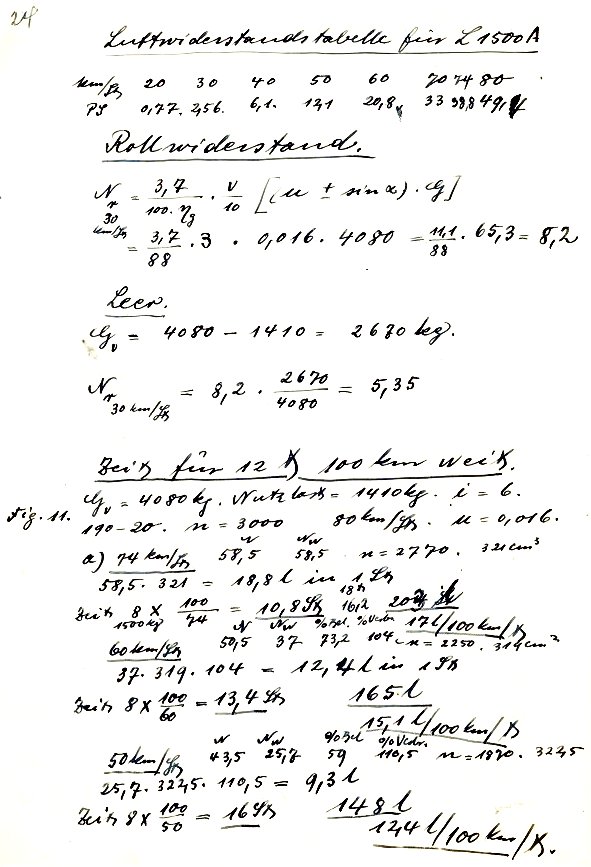 24
Luftwiderstandstabelle für L 1500 A
km/St 20 30 40 50 60 70 74 80
PS 0,77. 2,56. 6,1. 12,1 20,8 33 38,8 49,
Rollwiderstand.
N r 30 km/St = 3,7 / 100·ηg · v / 10 [(u ± sin α) · G]
= 3,7 / 88 · 3 · 0,016 · 4080 = 11,1 / 88 · 65,3 = 8,2
Leer.
Gv = 4080 – 1410 = 2670 kg.
N r 30 km/St = 8,2 · 2670 / 4080 = 5,35
Zeit für 12 t 100 km weit.
Fig. 11.
Gv = 4080 kg. Nutzlast = 1410 kg. i = 6.
190–20. n = 3000 80 km/St. u = 0,016.
N Nw
a) 74 km/St 58,5 58,5 n = 2770. 321 cm³
58,5 · 321 = 18,8 l in 1 St
Zeit 8 × 100 / 74 = 10,8 St 16,2
1500 kg 17 l/100 km/t
N Nw % Bel. % Verbr.
60 km/St 50,5 37 73,2 104 n = 2250. 319 cm³
37 · 319 · 104 = 12,4 l in 1 St
Zeit 8 × 100 / 60 = 13,4 St 165 l
15,1 l/100 km/t
N Nw % Bel % Verbr.
50 km/St 43,5 25,7 59 110,5 n = 1870. 322,5
25,7 · 322,5 · 110,5 = 9,3 l
Zeit 8 × 100 / 50 = 16 St 148 l
12,4 l/100 km/t.